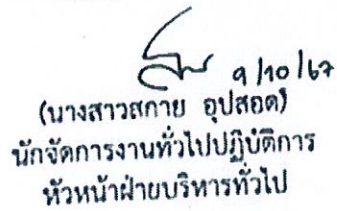 9/10/67
(นางสาวสกาย อุปสอด)
นักจัดการงานทั่วไปปฏิบัติการ
หัวหน้าฝ่ายบริหารทั่วไป